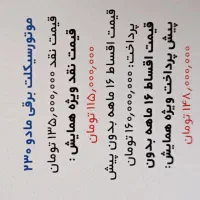 موتورسیکلت برقی مادو ۲۳۰
قیمت نقد ۱۳۵٫۰۰۰٫۰۰۰ تومان
قیمت نقد ویژه همایش :
۱۱۵٫۰۰۰٫۰۰۰ تومان
قیمت اقساط ۱۶ ماهه بدون پیش
پرداخت: ۱۶۰٫۰۰۰٫۰۰۰ تومان
قیمت اقساط ۱۶ ماهه بدون
پیش پرداخت ویژه همایش:
۱۴۸٫۰۰۰٫۰۰۰ تومان